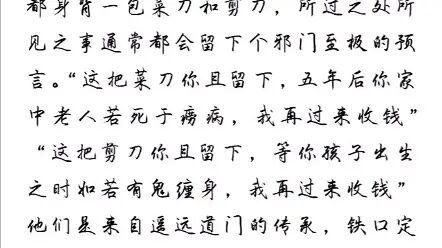 都身背一包菜刀和剪刀，所过之处所
见之事通常都会留下个邪门至极的预
言。“这把菜刀你且留下，五年后你家
中老人若死于痨病，我再过来收钱”
“这把剪刀你且留下，等你孩子出生
之时如若有鬼缠身，我再过来收钱”
他们是来自遥远道门的传承，铁口定